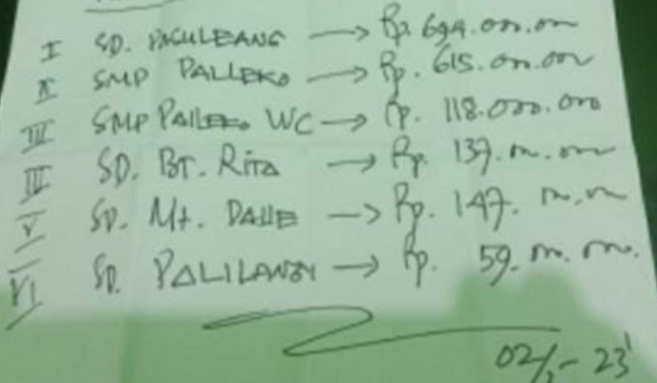 I SD. PACULEANG → Rp. 694.000.000
II SMP PALLEKO → Rp. 615.000.000
III SMP PALLEKO WC → Rp. 118.000.000
III SD. BT. RITA → Rp. 137.000.000
V SD. Mt. DALLE → Rp. 147.000.000
VI SD. PALILANGI → Rp. 59.000.000.